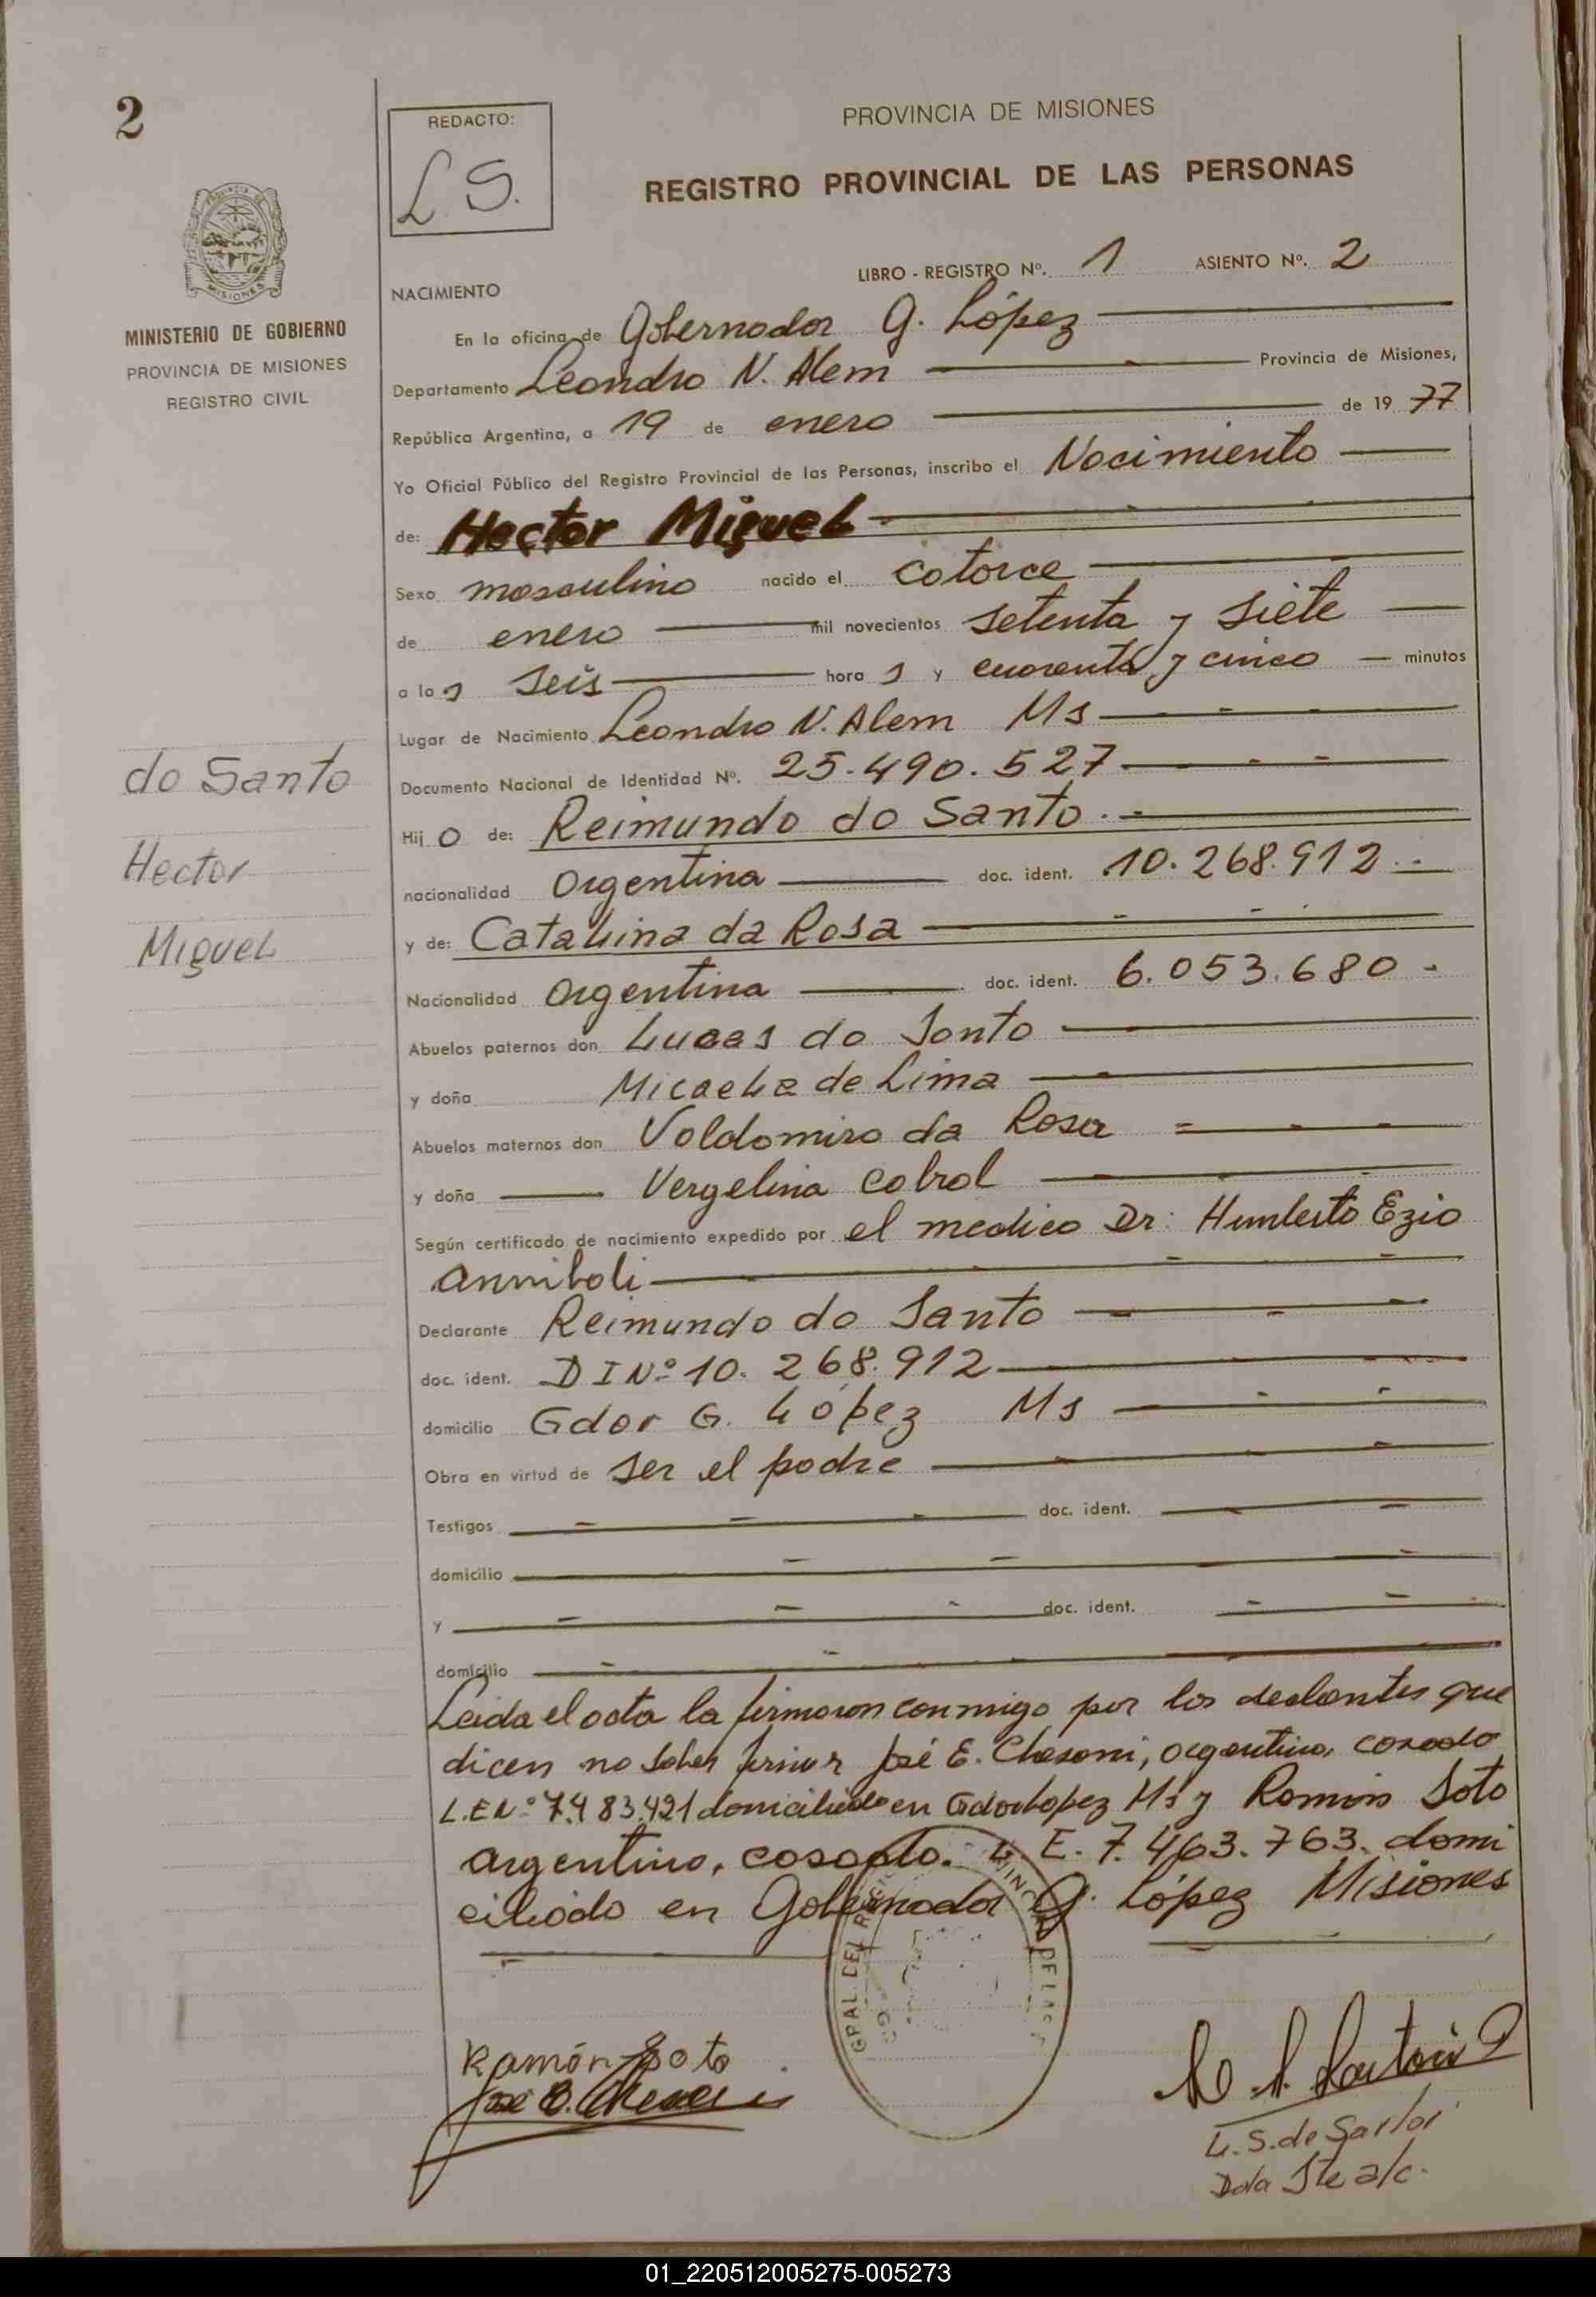 2
REDACTO:
L S.
PROVINCIA DE MISIONES
REGISTRO PROVINCIAL DE LAS PERSONAS
MISIONES
MINISTERIO DE GOBIERNO
PROVINCIA DE MISIONES
REGISTRO CIVIL
LIBRO - REGISTRO Nº. 1 ASIENTO Nº. 2
NACIMIENTO
En la oficina de Gobernador G. López
Departamento Leandro N. Alem Provincia de Misiones,
República Argentina, a 19 de enero de 19 77
Yo Oficial Público del Registro Provincial de las Personas, inscribo el Nacimiento
de: Hector Miguel
Sexo masculino nacido el catorce
de enero mil novecientos setenta y siete
a las seis hora s y cuarenta y cinco minutos
Lugar de Nacimiento Leandro N. Alem Ms
Documento Nacional de Identidad Nº. 25.490.527
do Santo
Hector
Miguel
Hij o de: Reimundo do Santo
nacionalidad argentina doc. ident. 10.268.912
y de: Catalina da Rosa
Nacionalidad argentina doc. ident. 6.053.680
Abuelos paternos don Lucas do Santo
y doña Micaela de Lima
Abuelos maternos don Valdomiro da Rosa
y doña Vergelina Cabral
Según certificado de nacimiento expedido por el medico Dr. Humberto Ezio
Anniboli
Declarante Reimundo do Santo
doc. ident. D I Nº 10.268.912
domicilio Gdor G. López Ms
Obra en virtud de ser el padre
Testigos doc. ident.
domicilio
y doc. ident.
domicilio
Leida el acta la firmaron conmigo por los declantes que
dicen no saber firmar José E. argentino, casado
L.E Nº 7.483.421 domiciliado en Gdor Lopez Ms y Ramón Soto
argentino, casado. L. E. 7.463.763. domi
ciliado en Gobernador G. López Misiones
GPAL DEL DE LAS
Ramón Soto
José E.
L. S. de Sartori